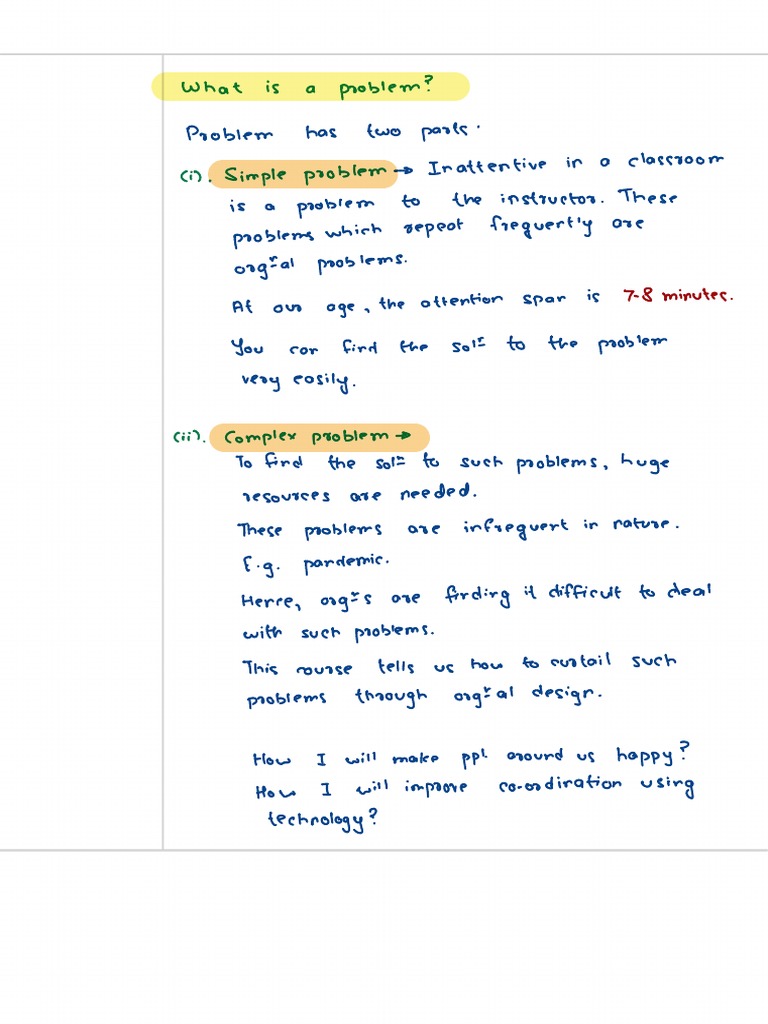 What is a problem?
Problem has two parts.
(i). Simple problem → Inattentive in a classroom
is a problem to the instructor. These
problems which repeat frequently are
orgⁿal problems.
At our age, the attention span is 7-8 minutes.
You can find the solⁿ to the problem
very easily.
(ii). Complex problem →
To find the solⁿ to such problems, huge
resources are needed.
These problems are infrequent in nature.
E.g. pandemic.
Hence, orgⁿs are finding it difficult to deal
with such problems.
This course tells us how to curtail such
problems through orgⁿal design.
How I will make ppl around us happy?
How I will improve co-ordination using
technology?